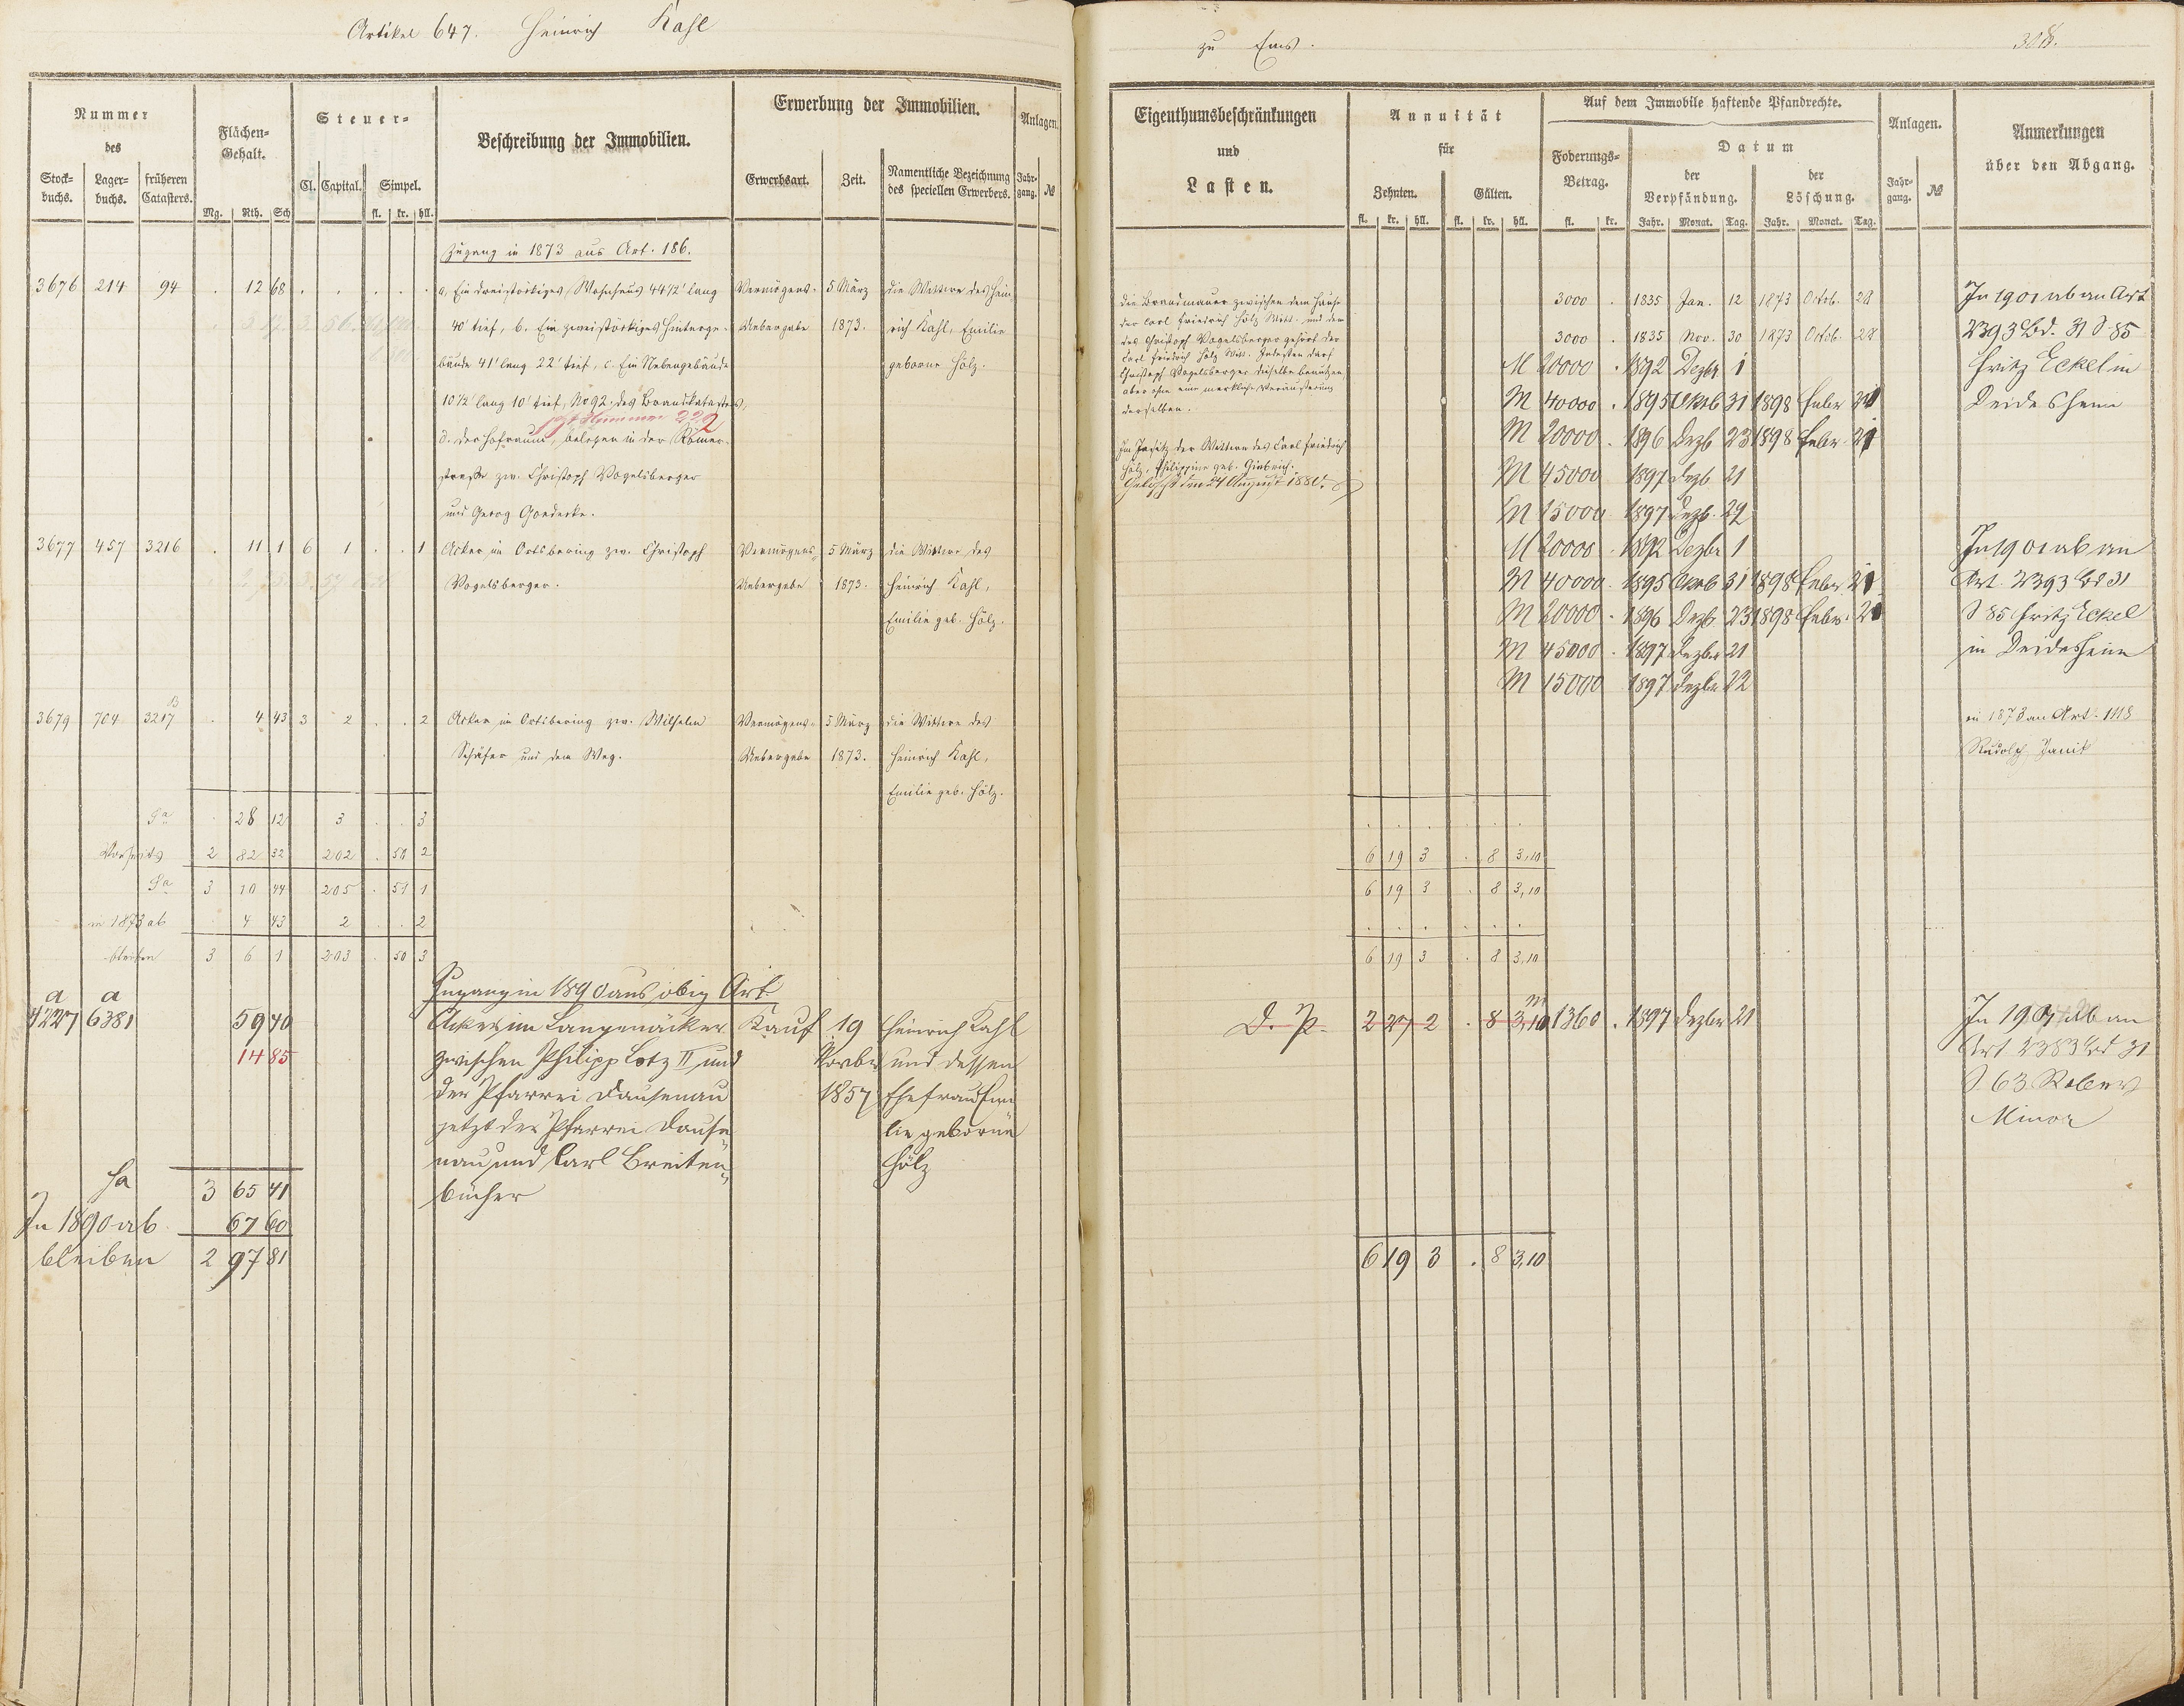 Artikel 647. Heinrich Kahl
zu Ems.
308.
Nummer des
Stock-buchs. Lager-buchs. früheren Catasters.
Flächen-Gehalt.
Mg. Rth. Sch
Steuer-
Cl. Capital. Simpel.
fl. kr. hll.
Beschreibung der Immobilien.
Erwerbung der Immobilien.
Erwerbsart. Zeit. Namentliche Bezeichnung des speciellen Erwerbers.
Anlagen.
Jahr-gang. №
Eigenthumsbeschränkungen und Lasten.
Annuität für
Zehnten. Gülten.
fl. kr. hll. fl. kr. hll.
Auf dem Immobile haftende Pfandrechte.
Foderungs-Betrag.
fl. kr.
Datum
der Verpfändung. der Löschung.
Jahr. Monat. Tag. Jahr. Monat. Tag.
Anlagen.
Jahr-gang. №
Anmerkungen über den Abgang.
Zugang in 1873 aus Art. 186.
3676 214 94 . 12 68 . . . . .
a, Ein dreistöckiges Wohnhaus 44 1/2' lang
40' tief, b. Ein zweistöckiges Hinterge-
bäude 41' lang 22' tief, c. Ein Nebengebäude
10 1/2' lang 10' tief, No 92. des Brandkatasters,
jetzt Nummer 222
d. der Hofraum, belegen in der Römer-
strasse zw. Christoph Vogelsberger
und Georg Goedecke.
Vermögens-
Uebergabe
5 März
1873.
die Wittwe des Hein
rich Kahl, Emilie
geborne Hölz.
die Brandmauer zwischen dem Hause
der Carl Friedrich Hölz Witt. und dem
des Christoph Vogelsberger gehört der
Carl Friedrich Hölz Witt. Indessen darf
Christoph Vogelsberger dieselbe benutzen,
aber ohne eine merkliche Veräusserung
derselben.
Im Besitz der Wittwe des Carl Friedrich
Hölz, Philippine geb.
Gelöscht den 24 August 1880.
3000 . 1835 Jan. 12 1873 Octob. 28
3000 . 1835 Nov. 30 1873 Octob. 28
M 20000 . 1892 Dezbr 1
M 40000 . 1895 Oktb 31 1898 Febr 21
M 20000 . 1896 Dezb 23 1898 Febr. 21
M 45000 1897 Dezb 21
M 15000 1897 Dezb. 22
In 1901 ab an Art
2393 Bd. 31 S 85
Fritz Eckel in
Deidesheim
3677 457 3216 . 11 1 6 1 . . 1
Acker im Ortsbering zw. Christoph
Vogelsberger.
Vermögens-
Uebergabe
5 März
1873.
die Wittwe des
Heinrich Kahl,
Emilie geb. Hölz.
M 20000 . 1892 Dezbr 1
M 40000 . 1895 Oktb 31 1898 Febr 21
M 20000 . 1896 Dezb. 23 1898 Febr. 21
M 45000 . 1897 Dezbr 21
M 15000 1897 Dezbr 22
In 1901 ab an
Art. 2393 Bd 31
S 85 Fritz Eckel
in Deidesheim
3679 704 3217 B . 4 43 3 2 . . 2
Acker im Ortsbering zw. Wilhelm
Schäfer und dem Weg.
Vermögens-
Uebergabe
5 März
1873.
die Wittwe des
Heinrich Kahl,
Emilie geb. Hölz.
in 1873 an Art. 1118
Rudolph Janik
Sa . 28 12 3 . . 3
Vorseits 2 82 32 202 . 50 2
6 19 3 . 8 3,10
Sa 3 10 44 205 . 51 1
6 19 3 . 8 3,10
in 1873 ab . 4 43 2 . . 2
bleiben 3 6 1 203 . 50 3
6 19 3 . 8 3,10
Zugang in 1890 aus obig Art.
a a
4227 6381 59 40
14 85
Acker im Langenäcker
zwischen Philipp Lotz II und
der Pfarrei Dausenau
jetzt der Pfarrei Dause
nau und Carl Breiten-
bücher
Kauf
19
Novbr
1857
Heinrich Kahl
und dessen
Ehefrau Emi
lie geborne
Hölz
D. P. 2 27 2 . 8 3,10
M 1360 . 1897 Dezbr 21
In 1901 ab an
Art 2383 Bd 31
S 63 Robert
Minor
Sa 3 65 41
In 1890 ab 67 60
bleiben 2 97 81
6 19 3 . 8 3,10